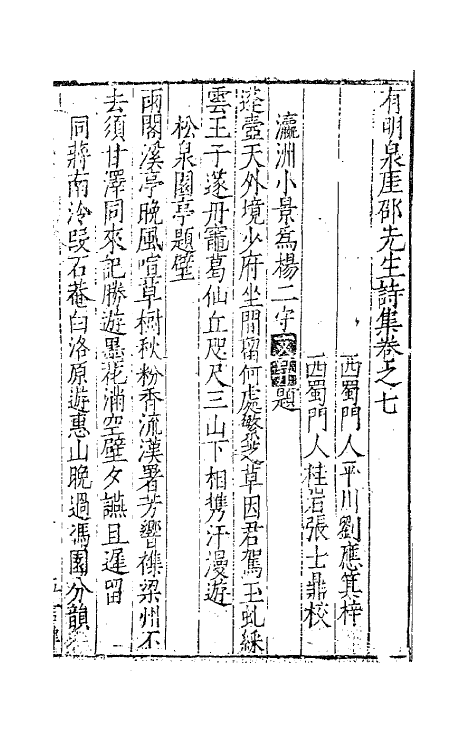 有明泉厓邵先生詩集卷之七
西蜀門人平川劉應箕梓
西蜀門人桂岩張士鼎校
瀛洲小景爲楊二守題
蓬壺天外境少府坐間留何處繫芝草因君駕玉虬綵
雲王子邃丹竈葛仙丘咫尺三山下相携汗漫遊
松泉閣亭題壁
雨閣溪亭晚風喧草樹秋粉香流漢署芳響襍梁州不
去須甘澤同來記勝遊墨花滿空壁夕讌且遲留
同蔣南泠段石菴白洛原遊惠山晚過馮園分韻